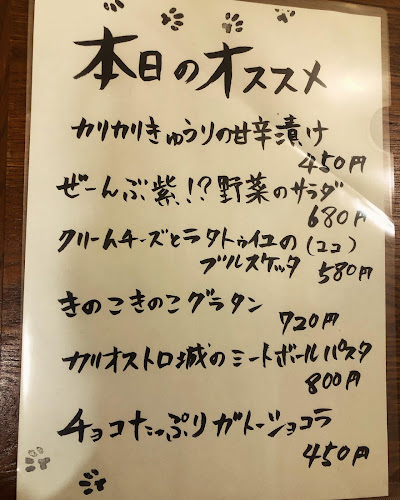 本日のオススメ
カリカリきゅうりの甘辛漬け
450円
ぜーんぶ紫!?野菜のサラダ
680円
クリームチーズとラタトゥイユの(2コ)
ブルスケッタ 580円
きのこきのこグラタン
720円
カリオストロ城のミートボールパスタ
800円
チョコたっぷりガトーショコラ
450円